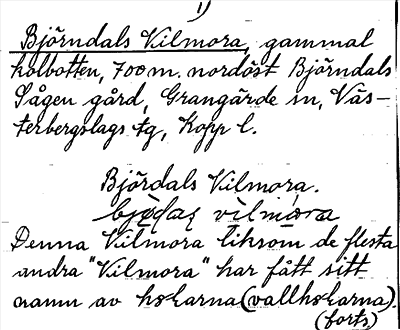 1)
Björndals Kilmora, gammal
kolbotten, 700 m. nordöst Björndals
Sågen gård, Grangärde sn, Väs-
terbergslags tg, Kopp l.
Björdals Kilmora.
Denna Kilmora liksom de flesta
andra "Kilmora" har fått sitt
namn av horkarna (vallhorkarna).
(forts)